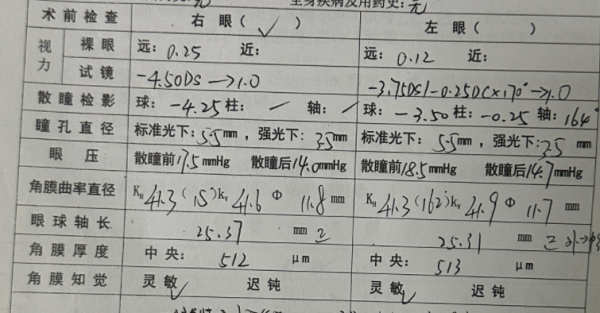 全身疾病及用药史：无
术前检查 右 眼（ ✓ ） 左 眼（ ）
视力 裸眼 远：0.25 近： 远：0.12 近：
试镜 -4.50DS→1.0 -3.75DS/-0.25DC×170°→1.0
散瞳检影 球：-4.25 柱：/ 轴：/ 球：-3.50 柱：-0.25 轴：164°
瞳孔直径 标准光下：5.5mm，强光下：3.5mm 标准光下：5.5mm，强光下：3.5mm
眼 压 散瞳前17.5mmHg 散瞳后14.0mmHg 散瞳前18.5mmHg 散瞳后14.7mmHg
角膜曲率直径 KH 41.3（15）KV 41.6 Φ 11.8 mm KH 41.3（162）KV 41.9 Φ 11.7 mm
眼球轴长 25.37 mm 25.31 mm
角膜厚度 中央：512 μm 中央：513 μm
角膜知觉 灵敏✓ 迟钝 灵敏✓ 迟钝